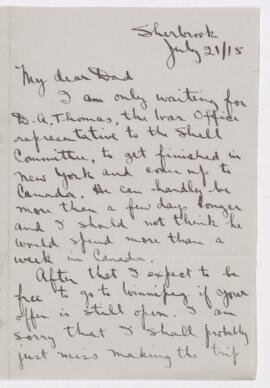 Sherbrook
July 21/15
My dear Dad
I am only waiting for
D.A. Thomas, the War Office
representative to the Shell
Committee, to get finished in
New York and come up to
Canada. He can hardly be
more than a few days longer
and I should not think he
would spend more than a
week in Canada.
After that I expect to be
free to go to Winnipeg if your
offer is still open. I am
sorry that I shall probably
just miss making the trip